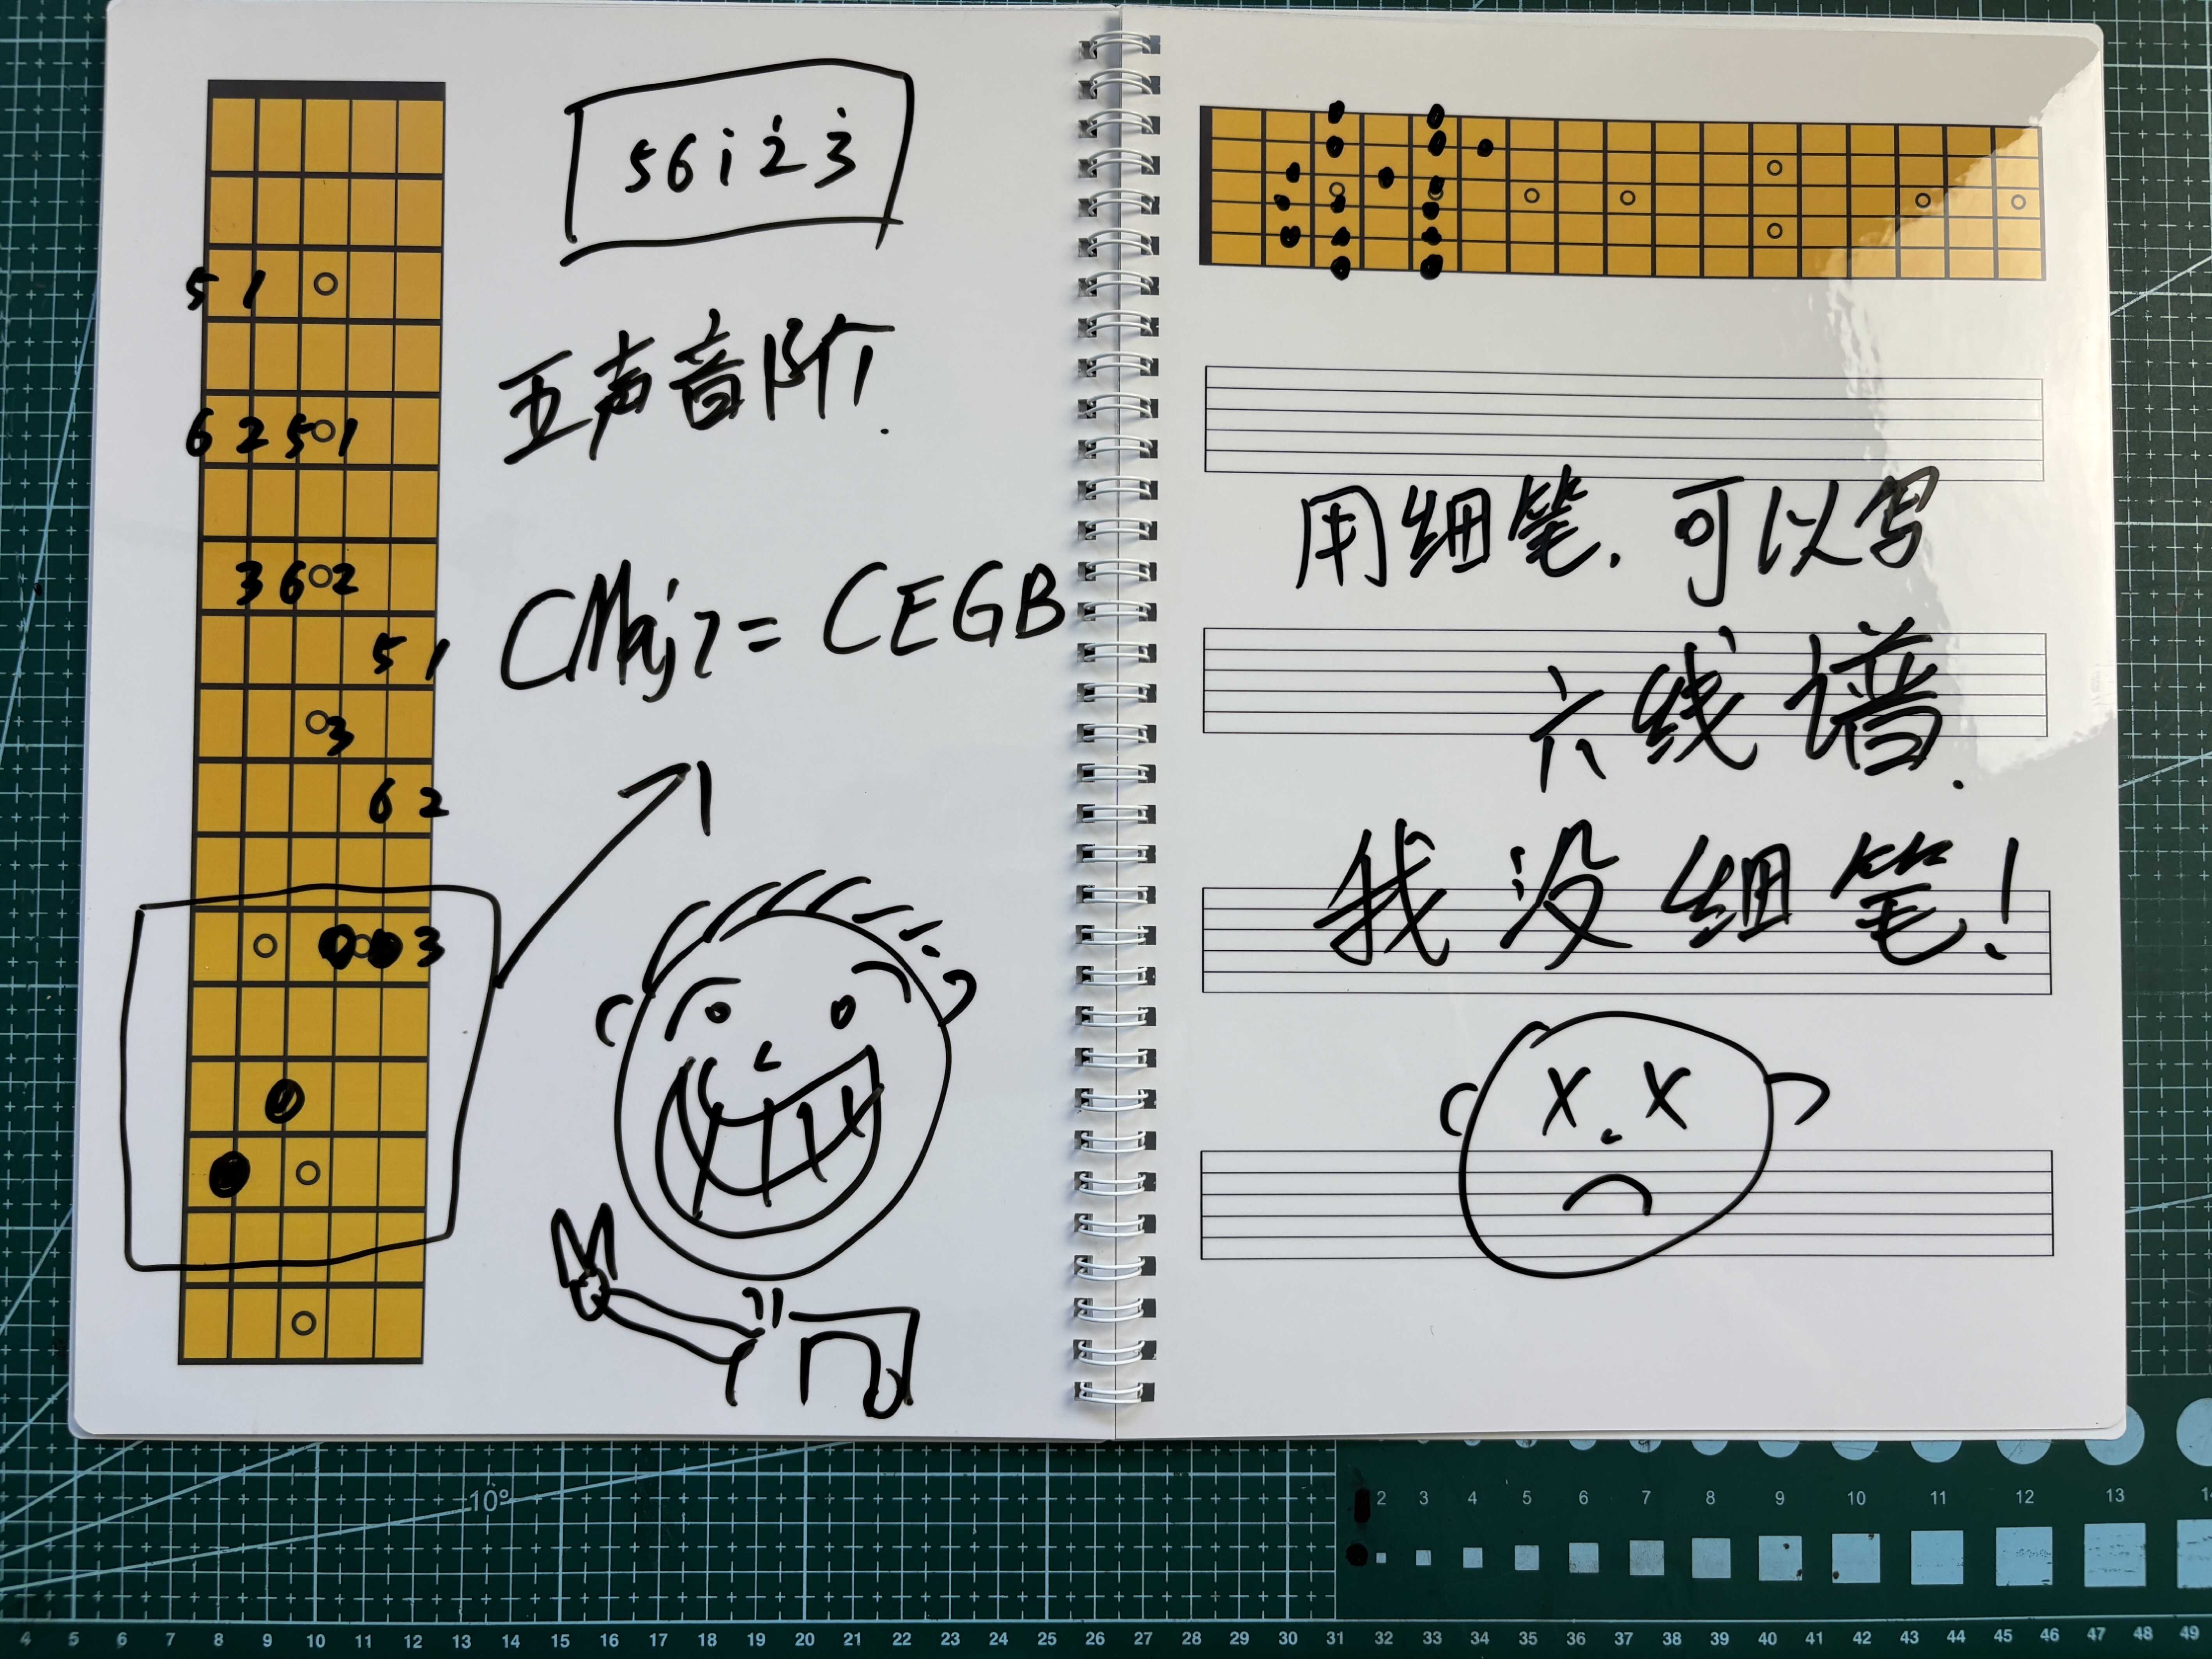 5 6 i 2̇ 3̇
五声音阶.
5 1
6 2 5 1
3 6 2
5 1
3
6 2
3
CMaj7 = CEGB
用细笔.可以写
六线谱.
我没细笔!
10°
2 3 4 5 6 7 8 9 10 11 12 13 14
4 5 6 7 8 9 10 11 12 13 14 15 16 17 18 19 20 21 22 23 24 25 26 27 28 29 30 31 32 33 34 35 36 37 38 39 40 41 42 43 44 45 46 47 48 49